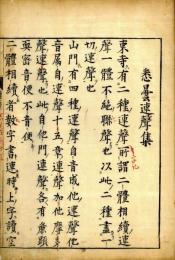 悉曇連聲集
東寺有二種連聲所謂二體相續連
聲一體不絶聯聲也以此二種盡一
切連聲也
山門有四種連聲自音成他連聲他
音属自連聲十五章連聲加他摩多
聲連聲也此自他門連聲各有意顕
與密音便不音便
二體相續者數字書連時上字讀空